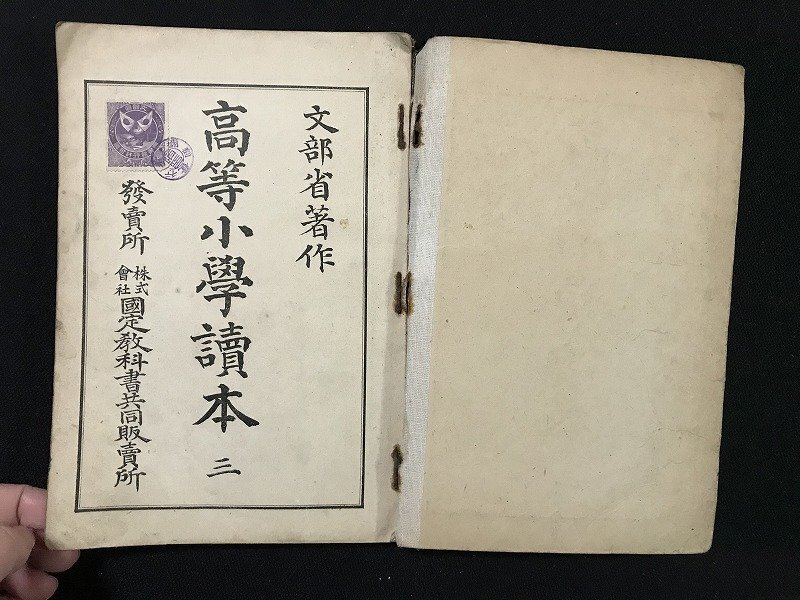 文部省著作
高等小學讀本 三
發賣所 株式會社 國定教科書共同販賣所